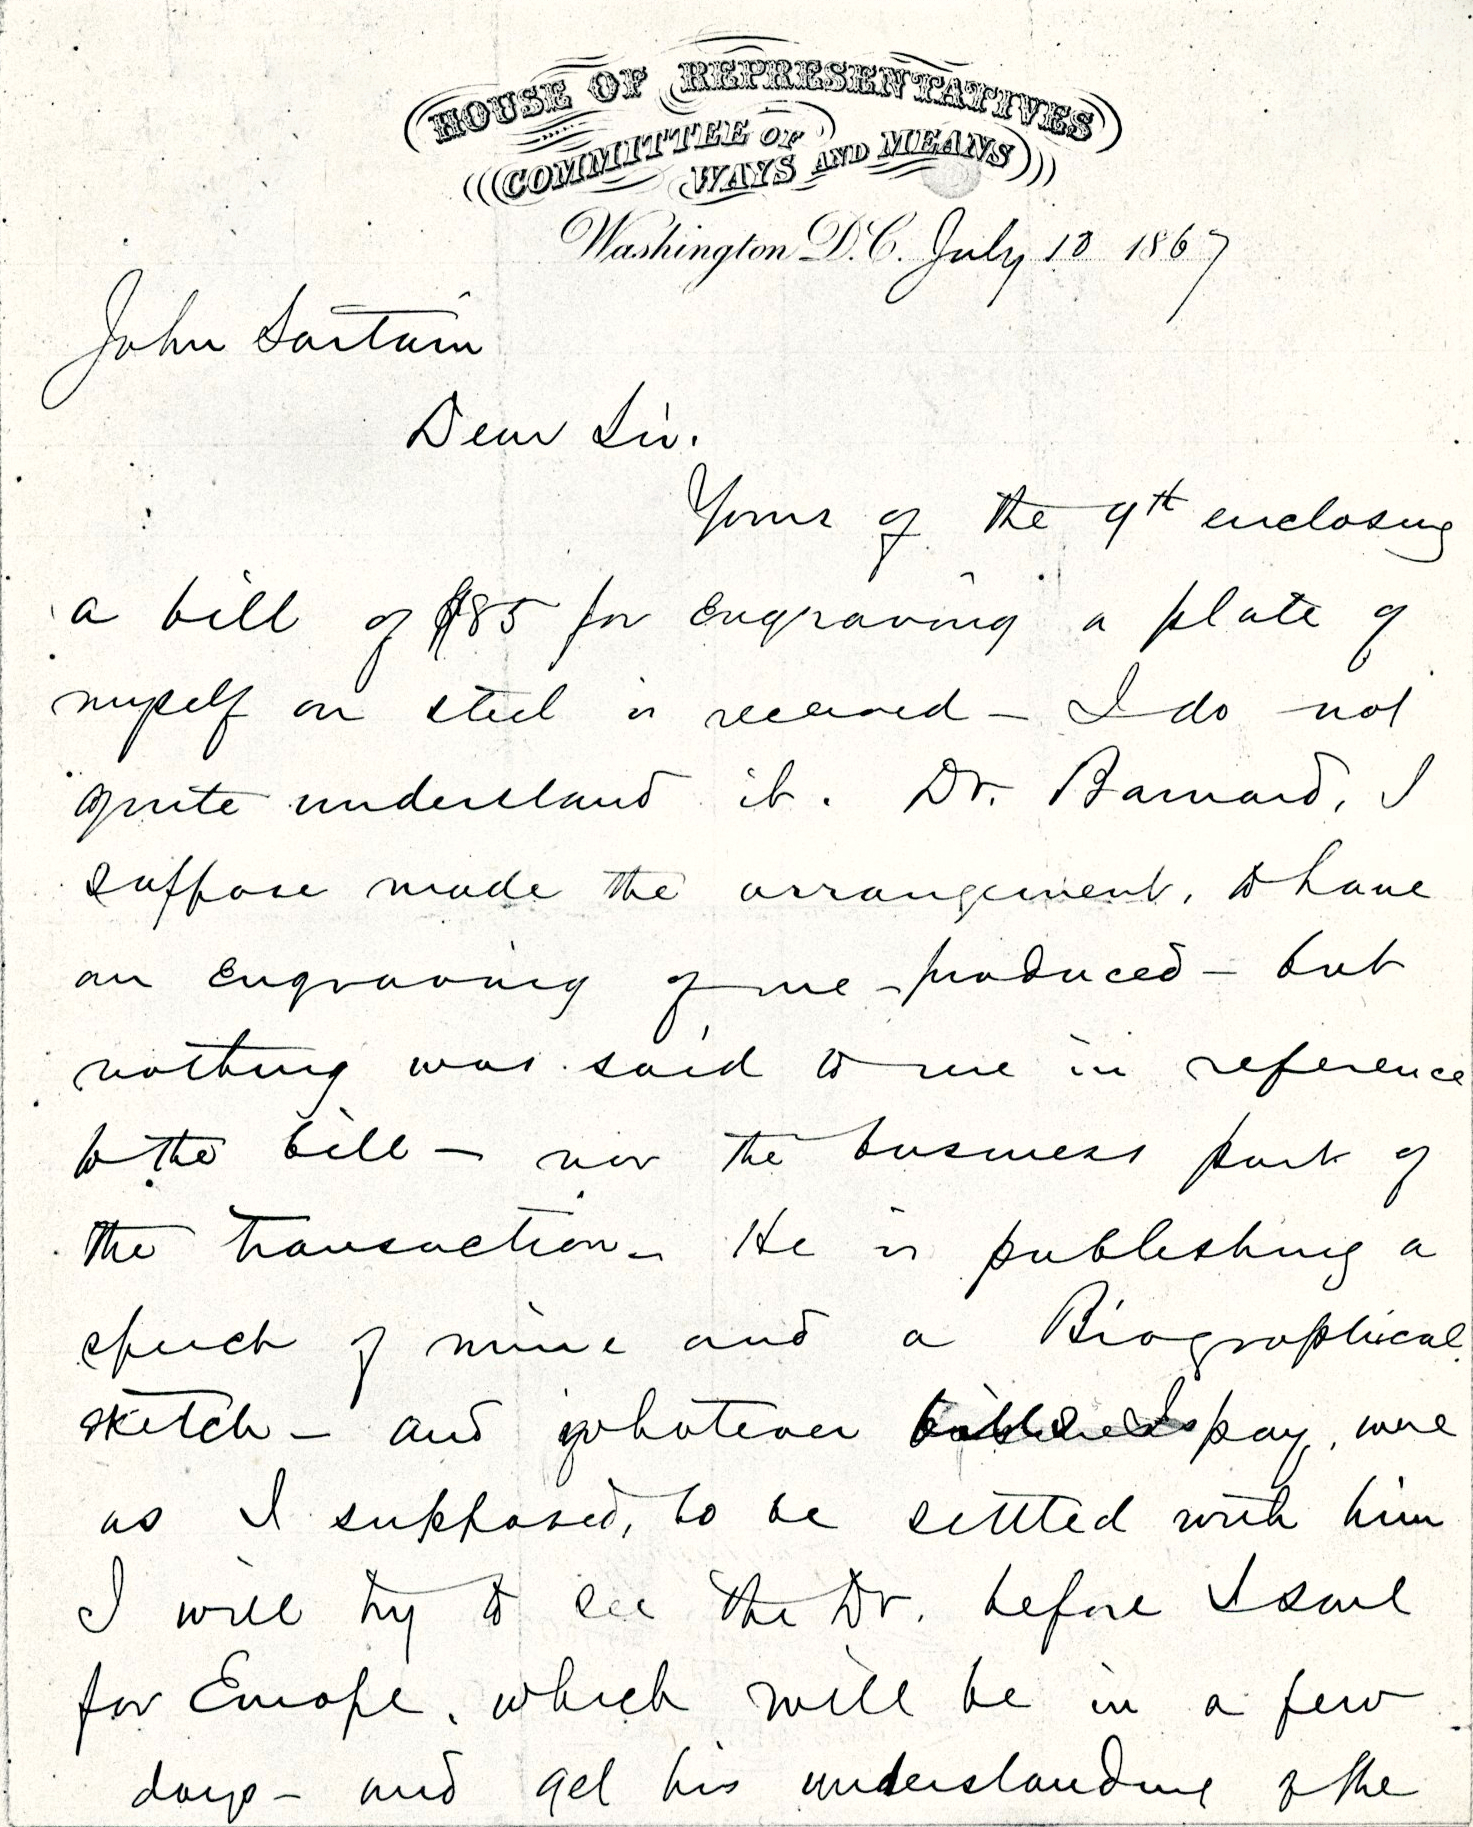 HOUSE OF REPRESENTATIVES
COMMITTEE OF
WAYS AND MEANS
Washington D.C. July 13 1867
John Sartain
Dear Sir.
Yours of the 9th enclosing
a bill of $85 for engraving a plate of
myself on steel is received – I do not
quite understand it. Dr. Barnard, I
suppose made the arrangement, to have
an engraving of me produced – but
nothing was said to me in reference
to the bill – nor the business part of
the transaction – He is publishing a
speech of mine and a Biographical
sketch – and whatever I pay, were
as I supposed, to be settled with him
I will try to see the Dr. before I sail
for Europe, which will be in a few
days – and get his understanding of the